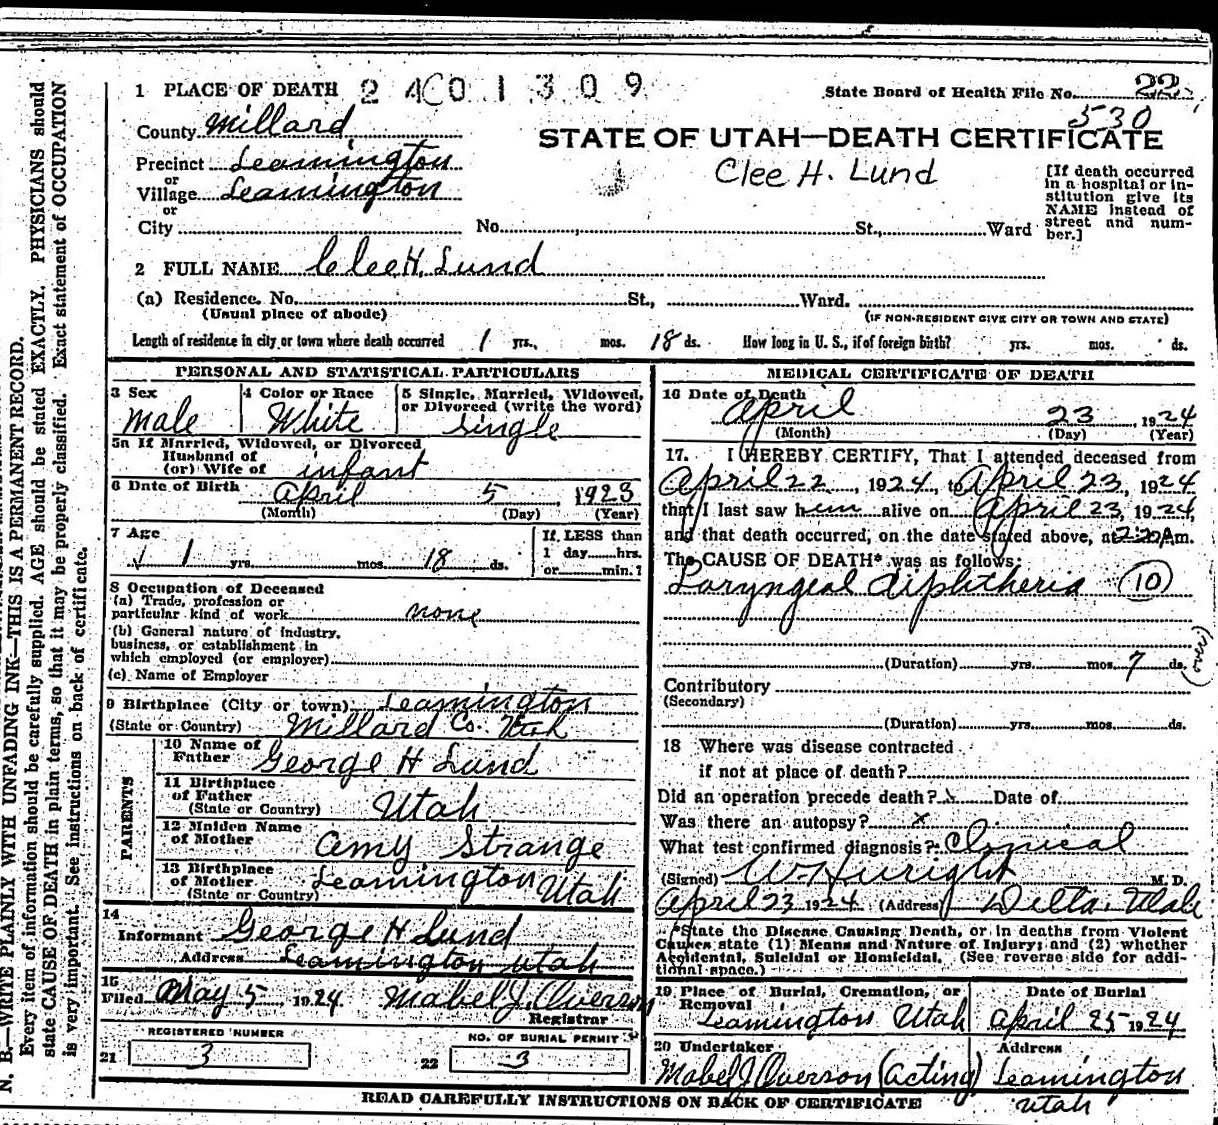 1 PLACE OF DEATH 24 0 1 3 0 9
State Board of Health File No. 22
530
County Millard
STATE OF UTAH—DEATH CERTIFICATE
Precinct Leamington
or
Village Leamington
or
City No. St., Ward
Clee H. Lund
[If death occurred
in a hospital or in-
stitution give its
NAME instead of
street and num-
ber.]
2 FULL NAME Clee H. Lund
(a) Residence. No. St., Ward.
(Usual place of abode) (IF NON-RESIDENT GIVE CITY OR TOWN AND STATE)
Length of residence in city or town where death occurred 1 yrs., mos. 18 ds. How long in U. S., if of foreign birth? yrs. mos. ds.
PERSONAL AND STATISTICAL PARTICULARS
3 Sex
male
4 Color or Race
White
5 Single, Married, Widowed,
or Divorced (write the word)
single
5a If Married, Widowed, or Divorced
Husband of
(or) Wife of infant
6 Date of Birth April 5, 1923
(Month) (Day) (Year)
7 Age
1 yrs. mos. 18 ds.
If LESS than
1 day......hrs.
or......min.?
8 Occupation of Deceased
(a) Trade, profession or
particular kind of work none
(b) General nature of industry,
business, or establishment in
which employed (or employer)
(c) Name of Employer
9 Birthplace (City or town) Leamington
(State or Country) Millard Co. Utah
PARENTS
10 Name of
Father George H Lund
11 Birthplace
of Father
(State or Country) Utah
12 Maiden Name
of Mother Amy Strange
13 Birthplace
of Mother
(State or Country) Leamington Utah
14
Informant George H Lund
Address Leamington Utah
15
Filed May 5, 1924. Mabel J. Overson
Registrar
REGISTERED NUMBER
21 3
NO. OF BURIAL PERMIT
22 3
MEDICAL CERTIFICATE OF DEATH
16 Date of Death
April 23 1924
(Month) (Day) (Year)
17. I HEREBY CERTIFY, That I attended deceased from
April 22, 1924, to April 23, 1924
that I last saw him alive on April 23, 1924,
and that death occurred, on the date stated above, at 2:20 A m.
The CAUSE OF DEATH* was as follows:
Laryngeal diphtheria (10)
(Duration) yrs. mos. 7 ds.
(over)
Contributory
(Secondary)
(Duration) yrs. mos. ds.
18 Where was disease contracted
if not at place of death?
Did an operation precede death? x Date of
Was there an autopsy? x
What test confirmed diagnosis? Clinical
(Signed) M. D.
April 23 1924 (Address) Delta, Utah
*State the Disease Causing Death, or in deaths from Violent
Causes state (1) Means and Nature of Injury; and (2) whether
Accidental, Suicidal or Homicidal. (See reverse side for addi-
tional space.)
19 Place of Burial, Cremation, or
Removal
Leamington Utah
Date of Burial
April 25 1924
20 Undertaker
Mabel J Overson (acting)
Address
Leamington
Utah
READ CAREFULLY INSTRUCTIONS ON BACK OF CERTIFICATE
N. B.—WRITE PLAINLY WITH UNFADING INK—THIS IS A PERMANENT RECORD.
Every item of information should be carefully supplied. AGE should be stated EXACTLY. PHYSICIANS should
state CAUSE OF DEATH in plain terms, so that it may be properly classified. Exact statement of OCCUPATION
is very important. See instructions on back of certificate.